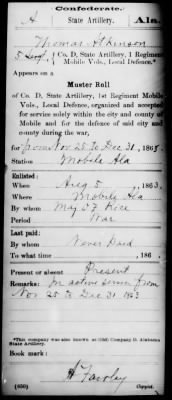 Confederate.
A State Artillery. Ala.
Thomas Atkinson
5 Sergt, Co. D, State Artillery, 1 Regiment
Mobile Vols., Local Defence.*
Appears on a
Muster Roll
of Co. D, State Artillery, 1st Regiment Mobile
Vols., Local Defence, organized and accepted
for service solely within the city and county of
Mobile and for the defence of said city and
county during the war,
for from Nov 25 to Dec 31, 1863.
Station Mobile Ala
Enlisted:
When Aug 5, 1863.
Where Mobile Ala
By whom Maj J T Rice
Period War
Last paid:
By whom Never Paid
To what time , 186 .
Present or absent Present
Remarks: In active service from
Nov 25 to Dec 31 1863
*This company was also known as (Old) Company D, Alabama
State Artillery.
Book mark:
(650) Copyist.